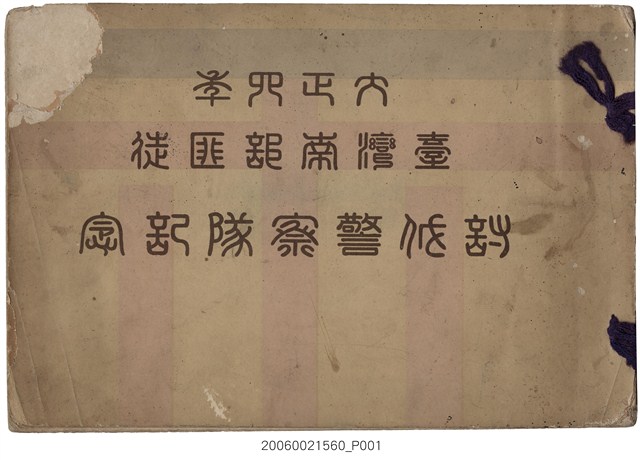 大正四年
臺灣南部匪徒
討伐警察隊記念
20060021560_P001